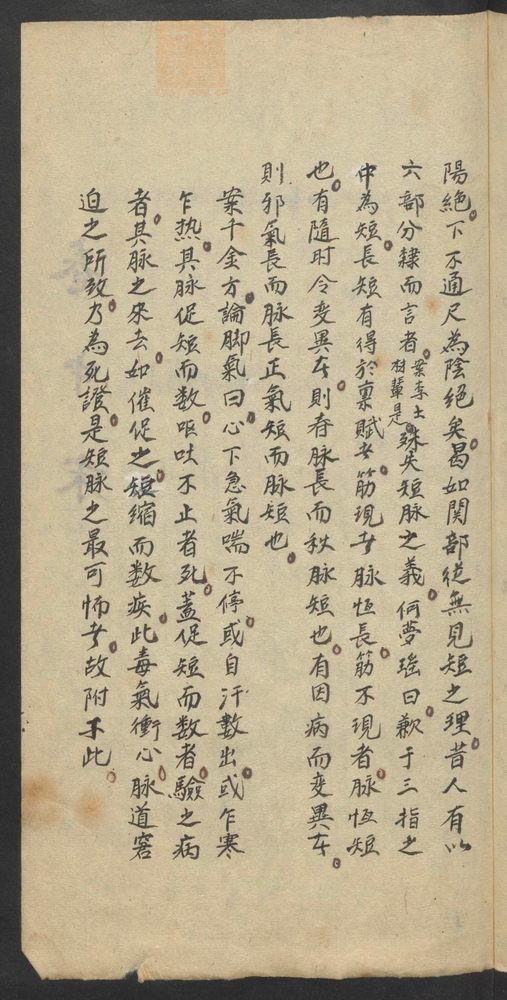 陽絶。下不通尺為陰絶矣。曷如関部從無見短之理。昔人有以
六部分隸而言者。案李士材輩是。殊失短脉之義。何夢瑤曰。歉于三指之
中為短。長短有得於稟賦者。筋現者脉恆長。筋不現者脉恆短
也。有隨时令变異者。則春脉長而秋脉短也。有因病而变異者。
則邪氣長而脉長正氣短而脉短也。
案千金方。論脚氣曰。心下急氣喘不停。或自汗數出。或乍寒
乍热。其脉促短而数。呕吐不止者死。蓋促短而数者。驗之病
者。其脉之來去。如催促之短縮而数疾。此毒氣衝心。脉道窘
迫之所致。乃為死證。是短脉之最可怖者。故附于此。